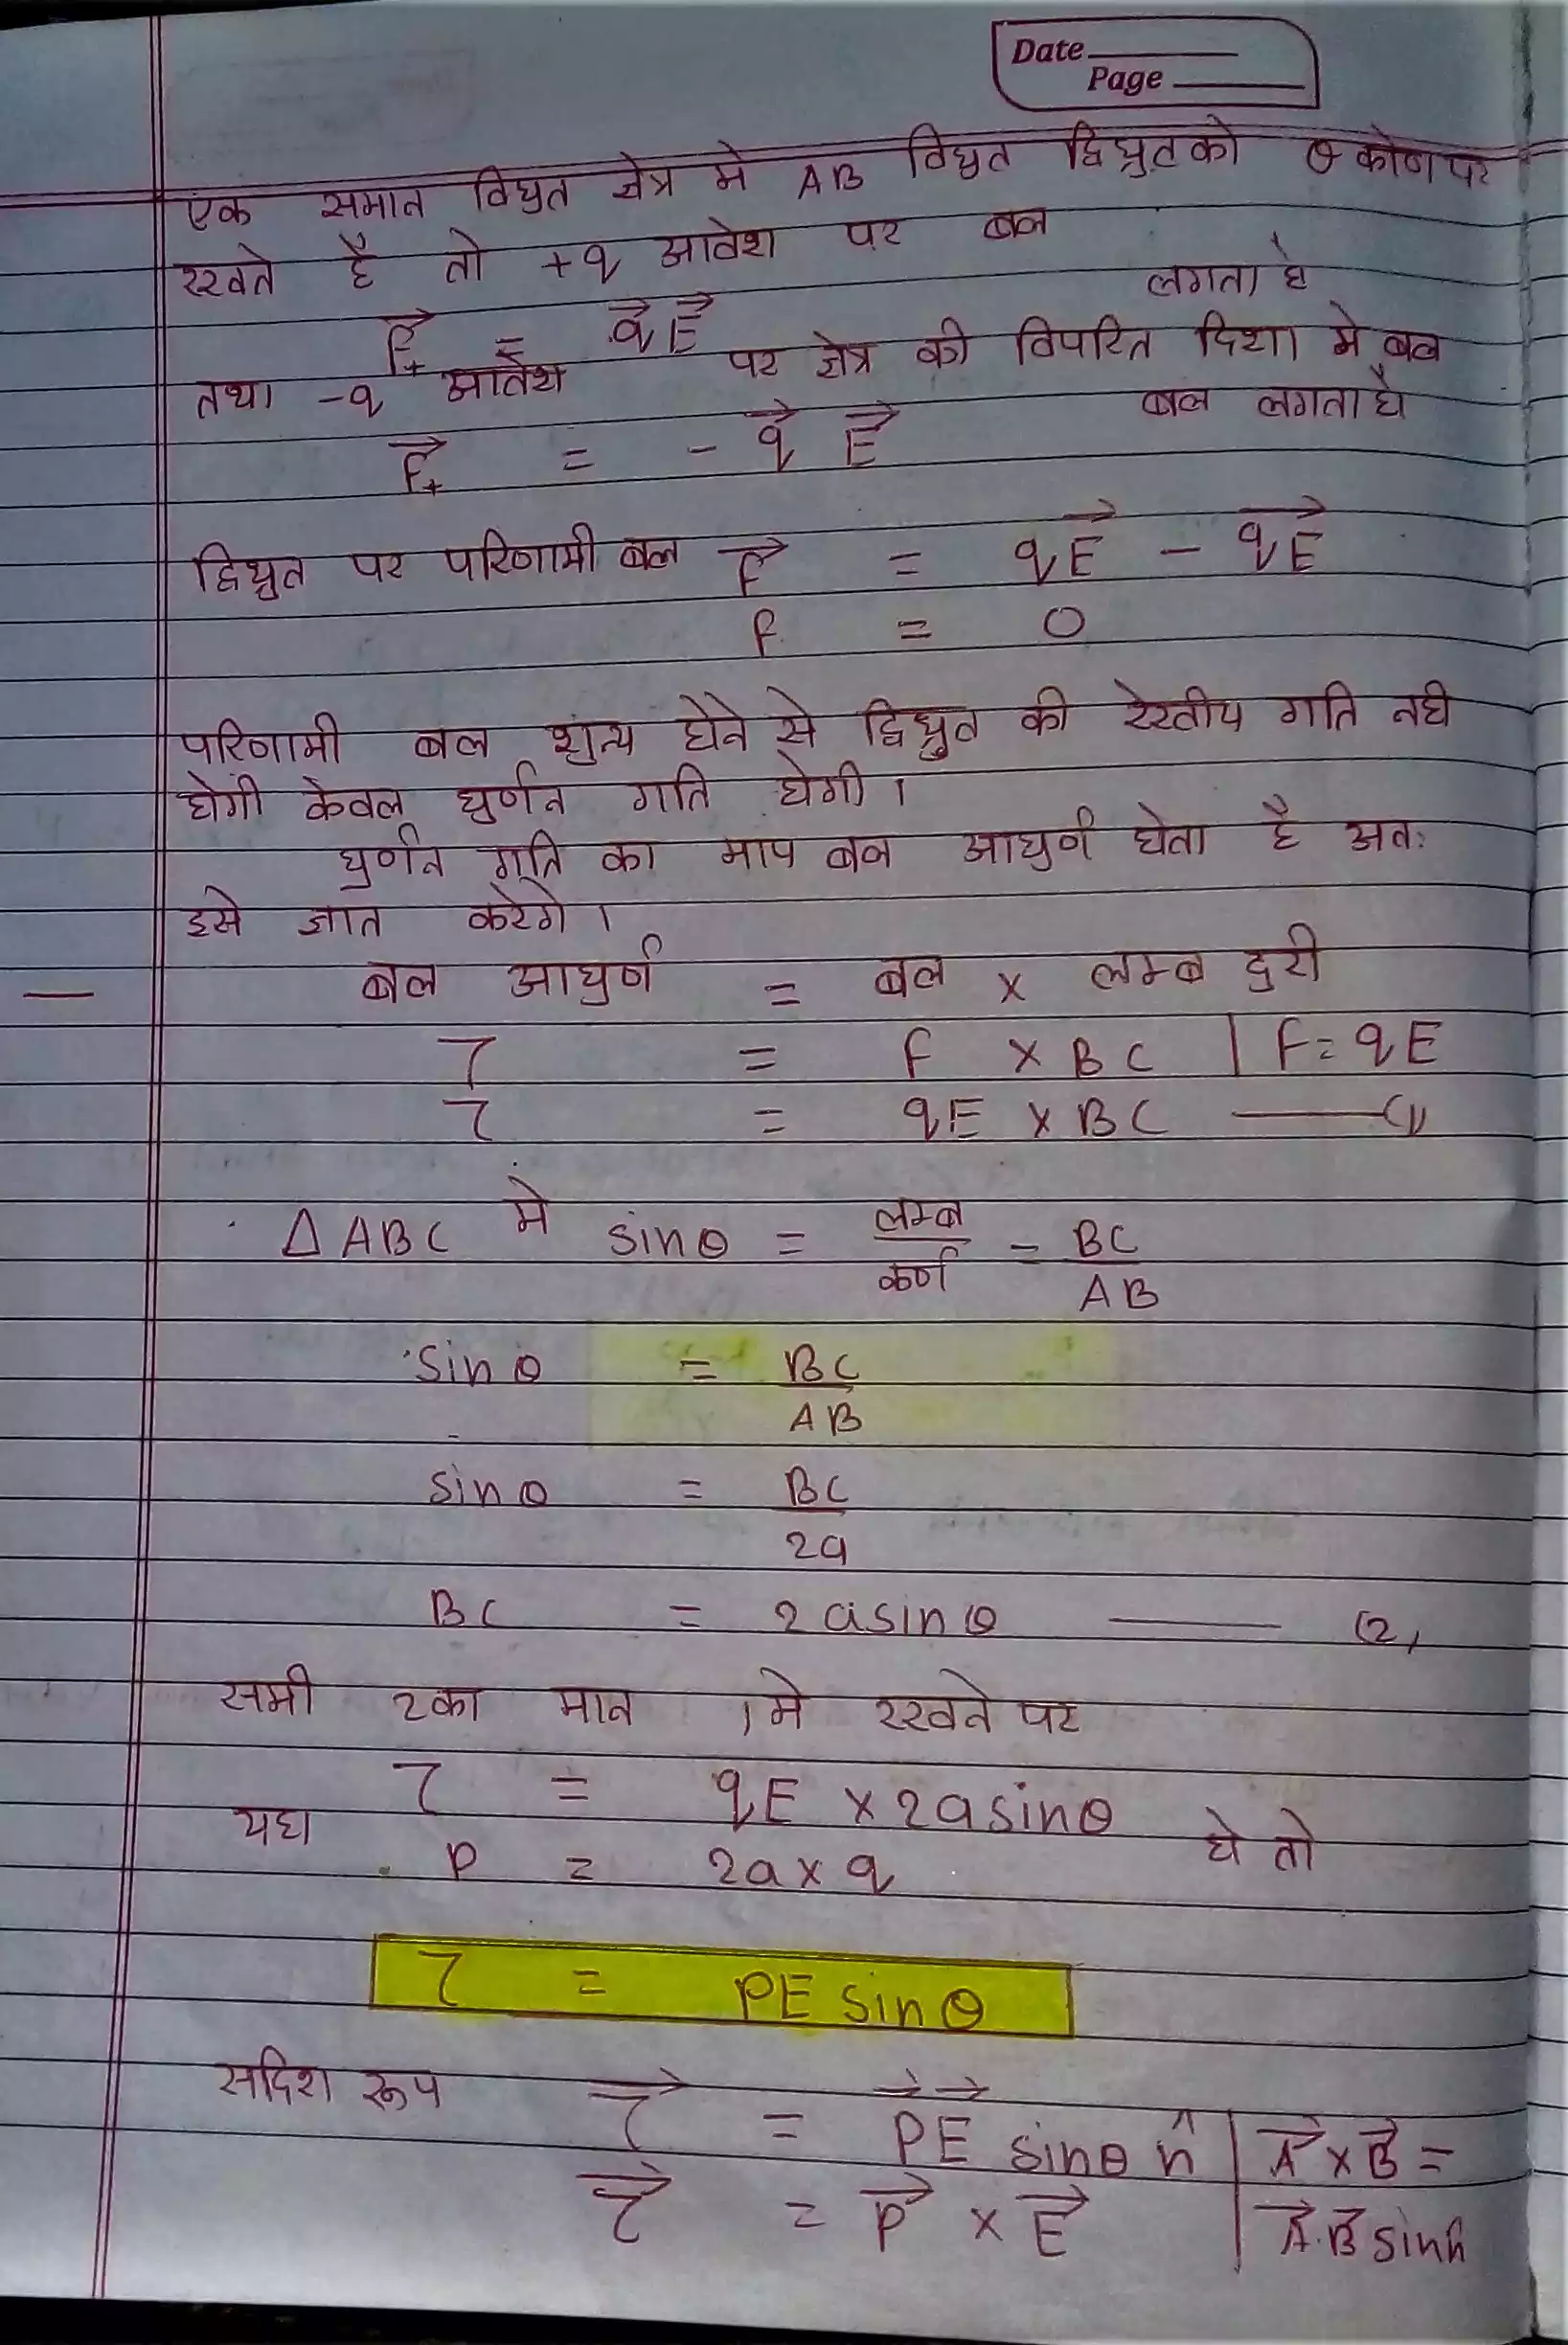 Date
Page
एक समान विधुत क्षेत्र मे AB विधुत द्विध्रुव को θ कोण पर
रखते है तो +q आवेश पर बल
लगता है
F⃗₊ = q⃗E⃗
तथा -q आवेश पर क्षेत्र की विपरित दिशा मे बल
बल लगता है
F⃗₊ = - q⃗ E⃗
द्विध्रुव पर परिणामी बल F⃗ = qE⃗ - qE⃗
F = 0
परिणामी बल शुन्य होने से द्विध्रुव की रेखीय गति नही
होगी केवल घुर्णन गति होगी ।
घुर्णन गति का माप बल आघुर्ण होता है अतः
इसे ज्ञात करेगे ।
— बल आघुर्ण = बल × लम्ब दुरी
τ = F × BC | F = qE
τ = qE × BC —— (1)
Δ ABC मे sinθ = लम्ब/कर्ण = BC/AB
sinθ = BC/AB
sinθ = BC/2a
BC = 2a sinθ —— (2)
समी 2 का मान 1 मे रखने पर
τ = qE × 2a sinθ
यहा P = 2a × q हे तो
τ = PE sinθ
सदिश रूप τ⃗ = P⃗E⃗ sinθ n̂ | A⃗ × B⃗ =
τ⃗ = P⃗ × E⃗ | A⃗.B⃗ sinn̂